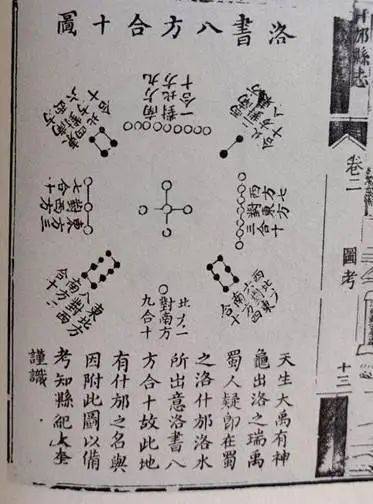 什邡縣志
卷二
圖考
十三
洛書八方合十圖
南方九
對北方
一合十
西方七
對東方
三合十
東方三
對西方
七合十
東北方
八對西
南方二
合十
北方一
對南方
九合十
天生大禹有神
龜出洛之瑞禹
蜀人疑即在蜀
之洛什邡洛水
所出意洛書八
方合十故此地
有什邡之名與
因附此圖以備
考知縣紀大奎
謹識